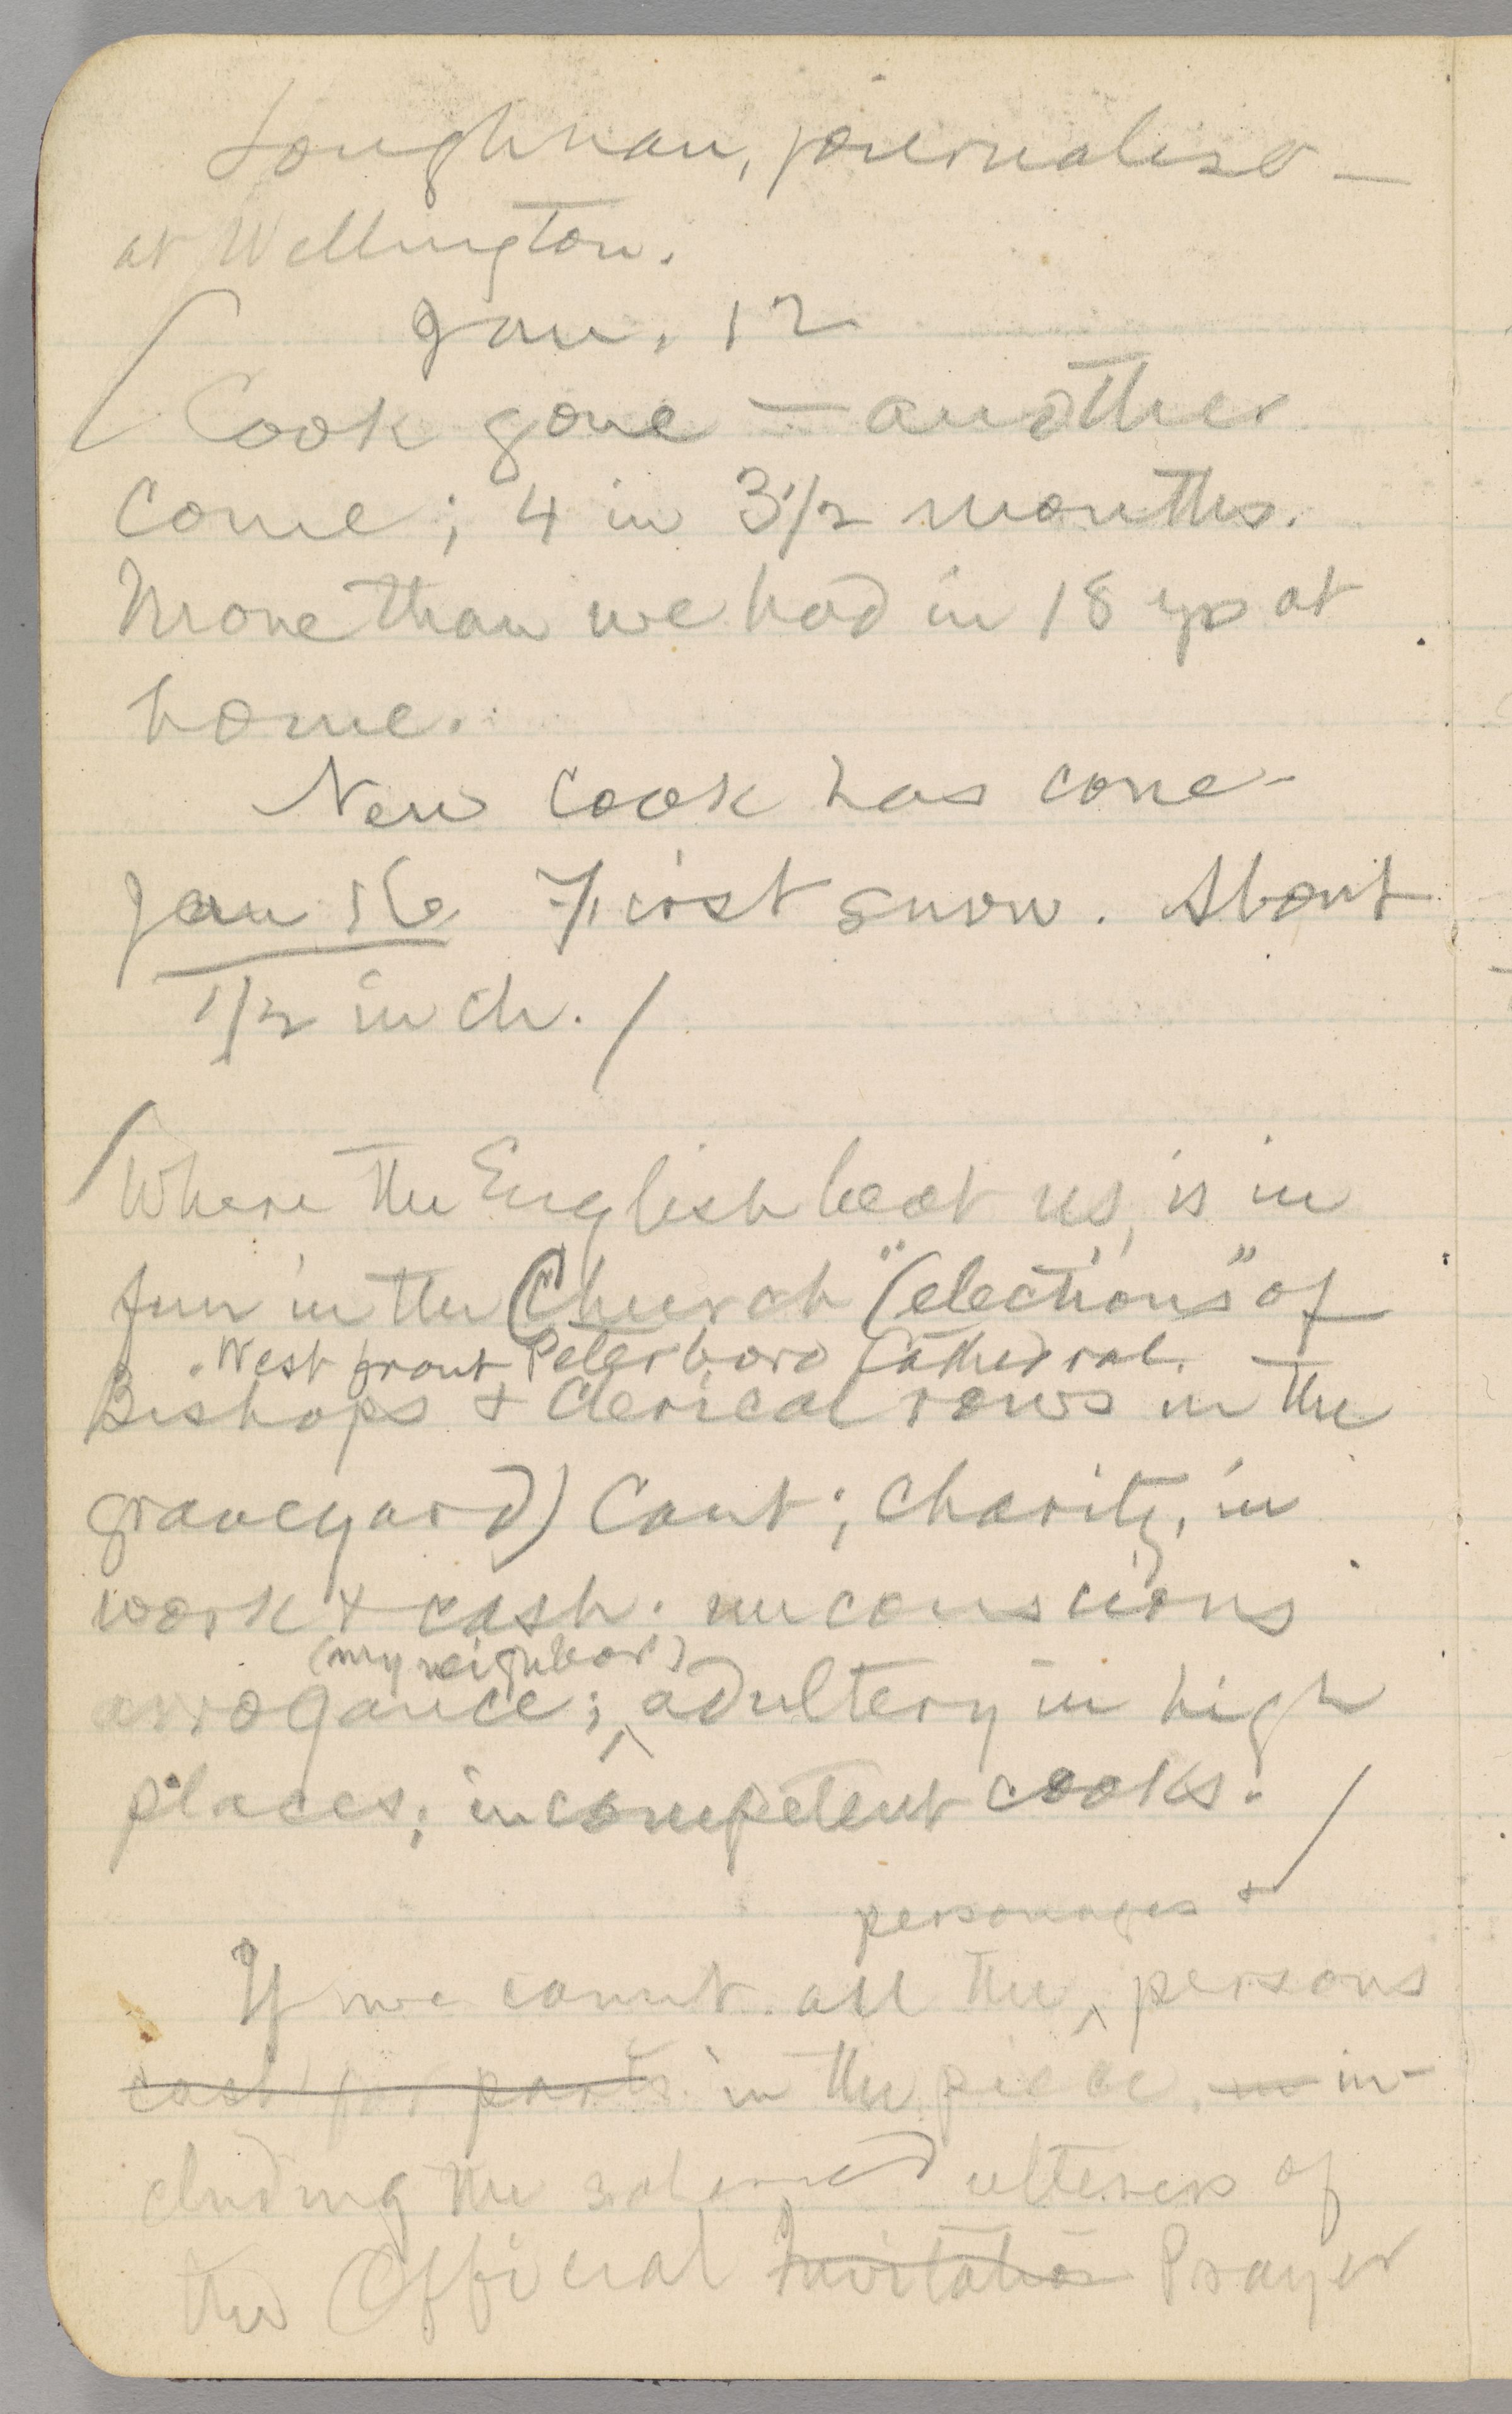 Loughnan, journalist —
at Wellington.
Jan. 12
Cook gone — another
come; 4 in 3 1/2 months.
More than we had in 18 yrs at
home.
New cook has come-
Jan 16 First snow. About
1/2 inch. /
/ Where the English beat us, is in
fun in the (Church "(elections" of
West front Peterboro Cathedral.
Bishops & clerical rows in the
graveyard) Cant; Charity, in
work & cash. unconscious
(my neighbor)
arrogance; ^ adultery in high
places; incompetent cooks. /
personages &
If we count all the ^ persons
cast for parts in the piece, in-
cluding the salaried utterers of
the Official Invitation Prayer